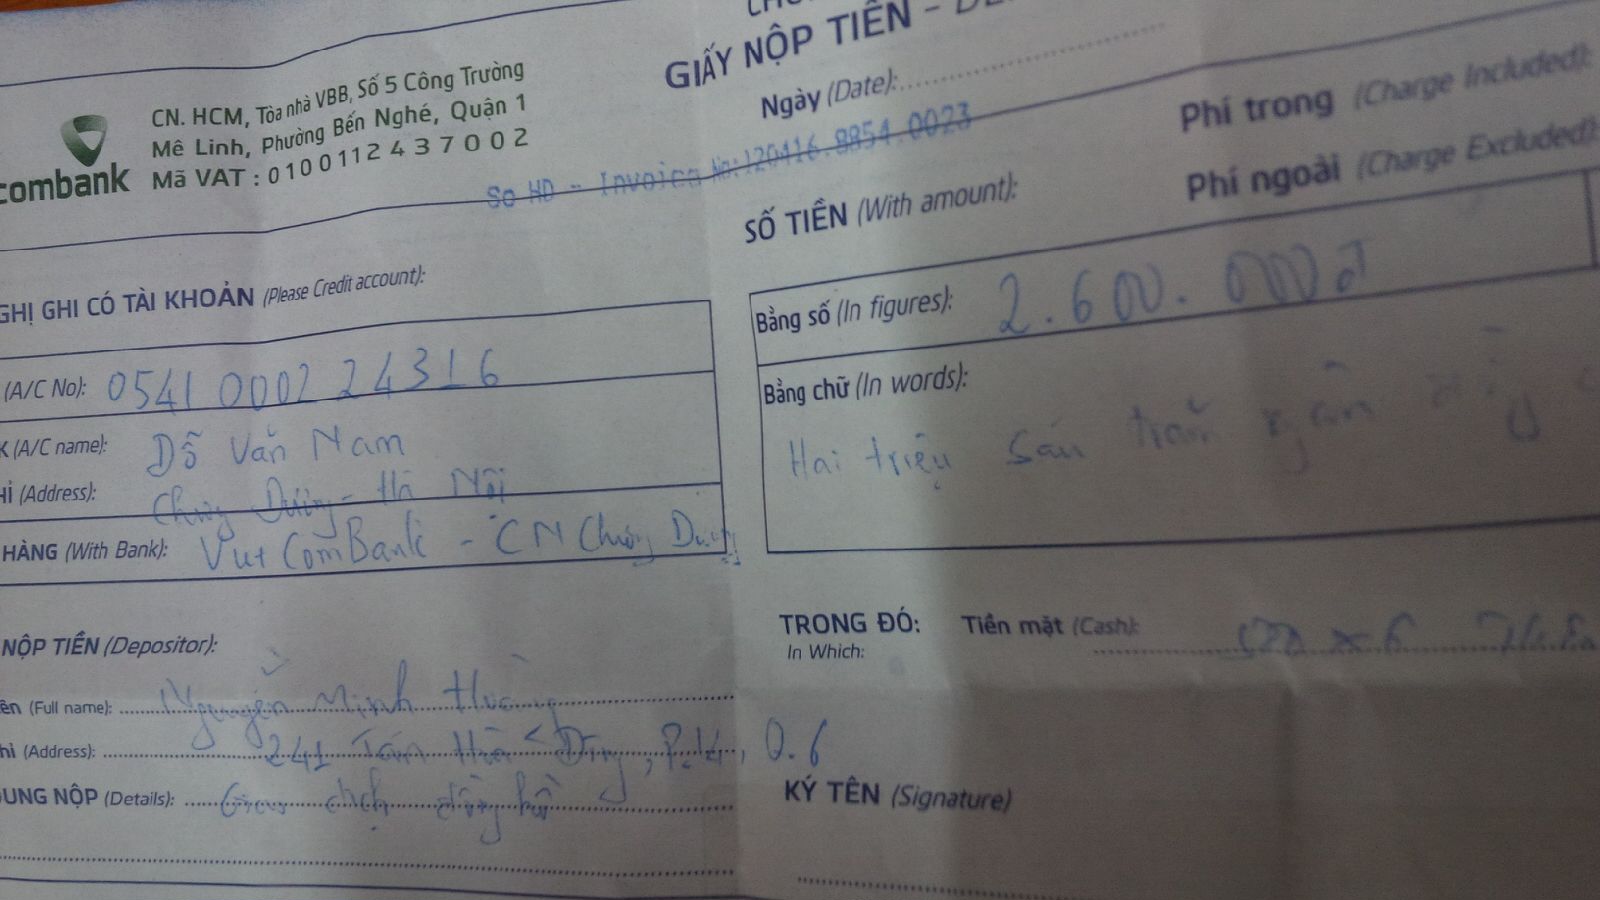 GIẤY NỘP TIỀN -
Ngày (Date):
CN. HCM, Tòa nhà VBB, Số 5 Công Trường
Mê Linh, Phường Bến Nghé, Quận 1
Mã VAT : 0100112437002
combank
So HD - Invoice No:120416.8854.0023
Phí trong (Charge Included):
Phí ngoài (Charge Excluded):
SỐ TIỀN (With amount):
GHỊ GHI CÓ TÀI KHOẢN (Please Credit account):
Bằng số (In figures): 2.600.000đ
(A/C No): 0541 0002 24316
K (A/C name): Đỗ Văn Nam
HỈ (Address): Chương Dương - Hà Nội
HÀNG (With Bank): VietComBank - CN Chương Dương
Bằng chữ (In words):
Hai triệu sáu trăm ngàn
TRONG ĐÓ: Tiền mặt (Cash):
In Which:
NỘP TIỀN (Depositor):
ên (Full name): Nguyễn Minh
hỉ (Address): 241 Tân Hòa Đông, P.14, Q.6
DUNG NỘP (Details): Giao dịch đồng hồ
KÝ TÊN (Signature)